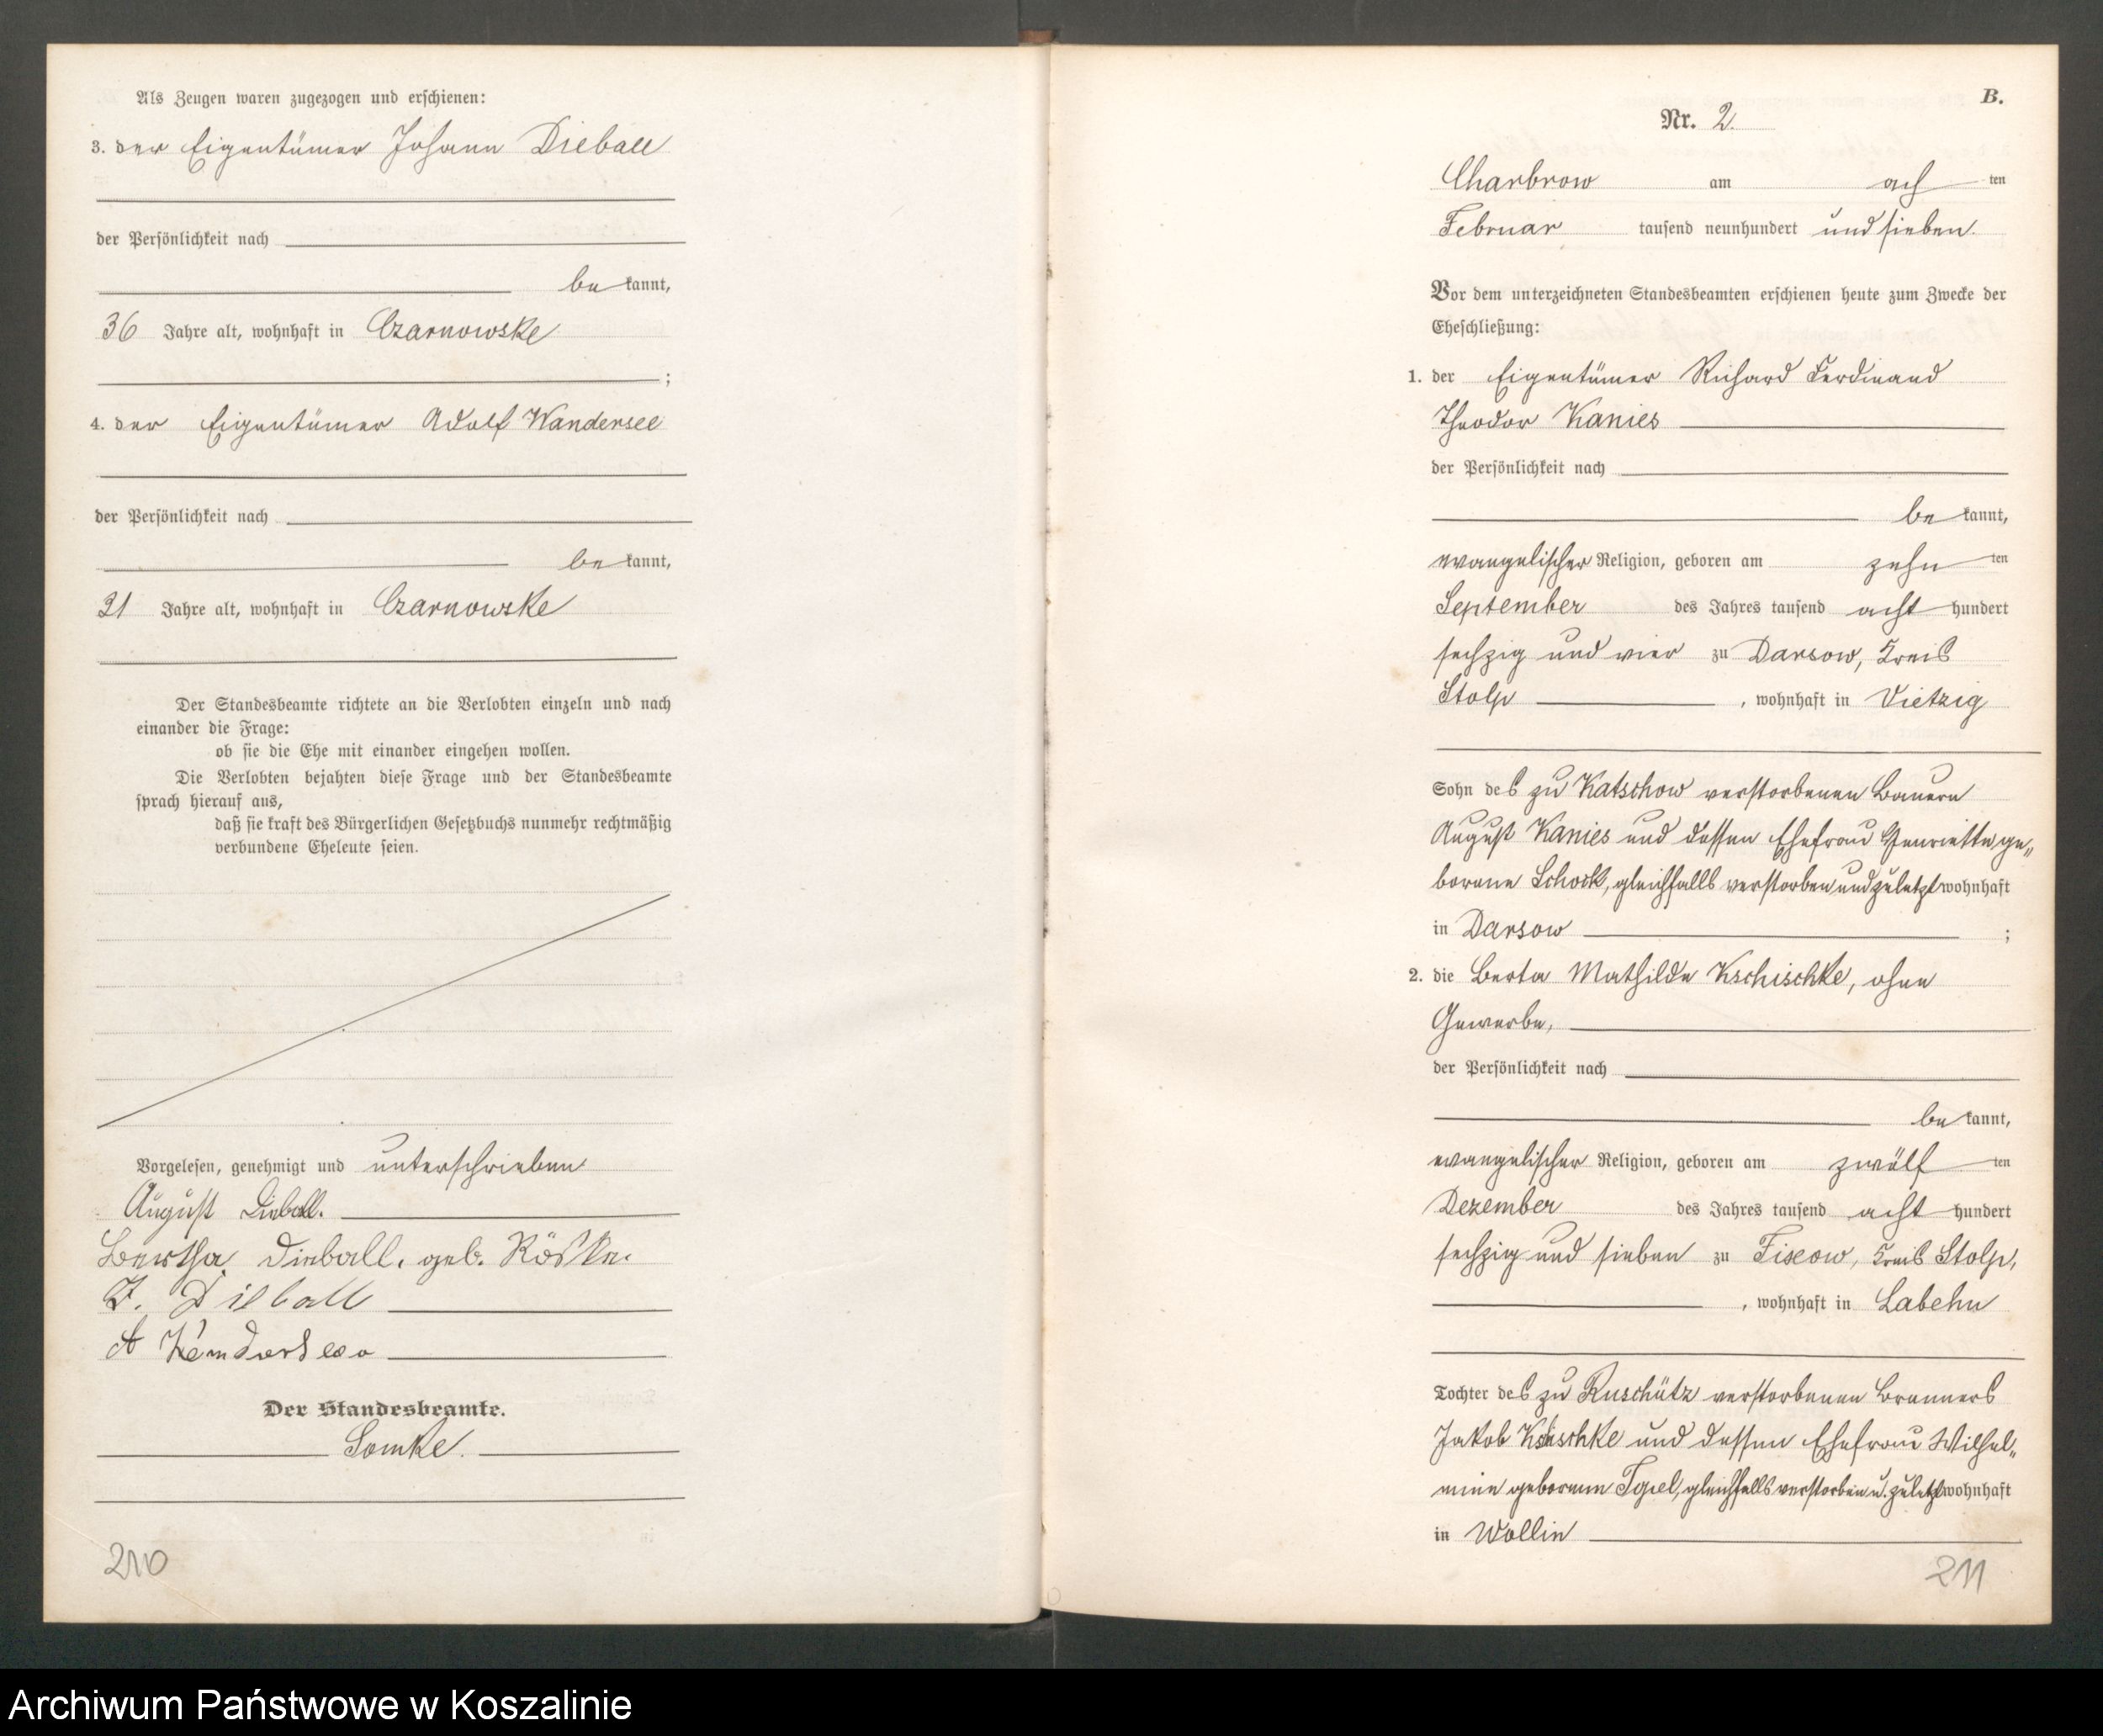 Als Zeugen waren zugezogen und erschienen:
3. der Eigentümer Johann Dieball
der Persönlichkeit nach
be kannt,
36 Jahre alt, wohnhaft in Czarnowske
;
4. der Eigentümer Adolf Wandersee
der Persönlichkeit nach
be kannt,
31 Jahre alt, wohnhaft in Czarnowske
Der Standesbeamte richtete an die Verlobten einzeln und nach
einander die Frage:
ob sie die Ehe mit einander eingehen wollen.
Die Verlobten bejahten diese Frage und der Standesbeamte
sprach hierauf aus,
daß sie kraft des Bürgerlichen Gesetzbuchs nunmehr rechtmäßig
verbundene Eheleute seien.
Vorgelesen, genehmigt und unterschrieben
August Dieball.
Bertha Dieball. geb. Röske.
J. Dieball
A Wandersee
Der Standesbeamte.
Lomke.
210
B.
Nr. 2.
Charbrow am ach ten
Februar tausend neunhundert und sieben.
Vor dem unterzeichneten Standesbeamten erschienen heute zum Zwecke der
Eheschließung:
1. der Eigentümer Richard Ferdinand
Theodor Kanies
der Persönlichkeit nach
be kannt,
evangelischer Religion, geboren am zehn ten
September des Jahres tausend acht hundert
sechzig und vier zu Darsow, Kreis
Stolp , wohnhaft in Vietzig
Sohn des zu Katschow verstorbenen Bauern
August Kanies und dessen Ehefrau Henriette ge„
borene Schock, gleichfalls verstorben und zuletzt wohnhaft
in Darsow ;
2. die Berta Mathilde Kschischke, ohne
Gewerbe,
der Persönlichkeit nach
be kannt,
evangelischer Religion, geboren am zwölf ten
Dezember des Jahres tausend acht hundert
sechzig und sieben zu Fixow, Kreis Stolp,
, wohnhaft in Labehn
Tochter des zu Ruschütz verstorbenen Brenners
Jakob und dessen Ehefrau Wilhel„
mine geborenen gleichfalls verstorben u. zuletzt wohnhaft
in Wollin
211
Archiwum Państwowe w Koszalinie